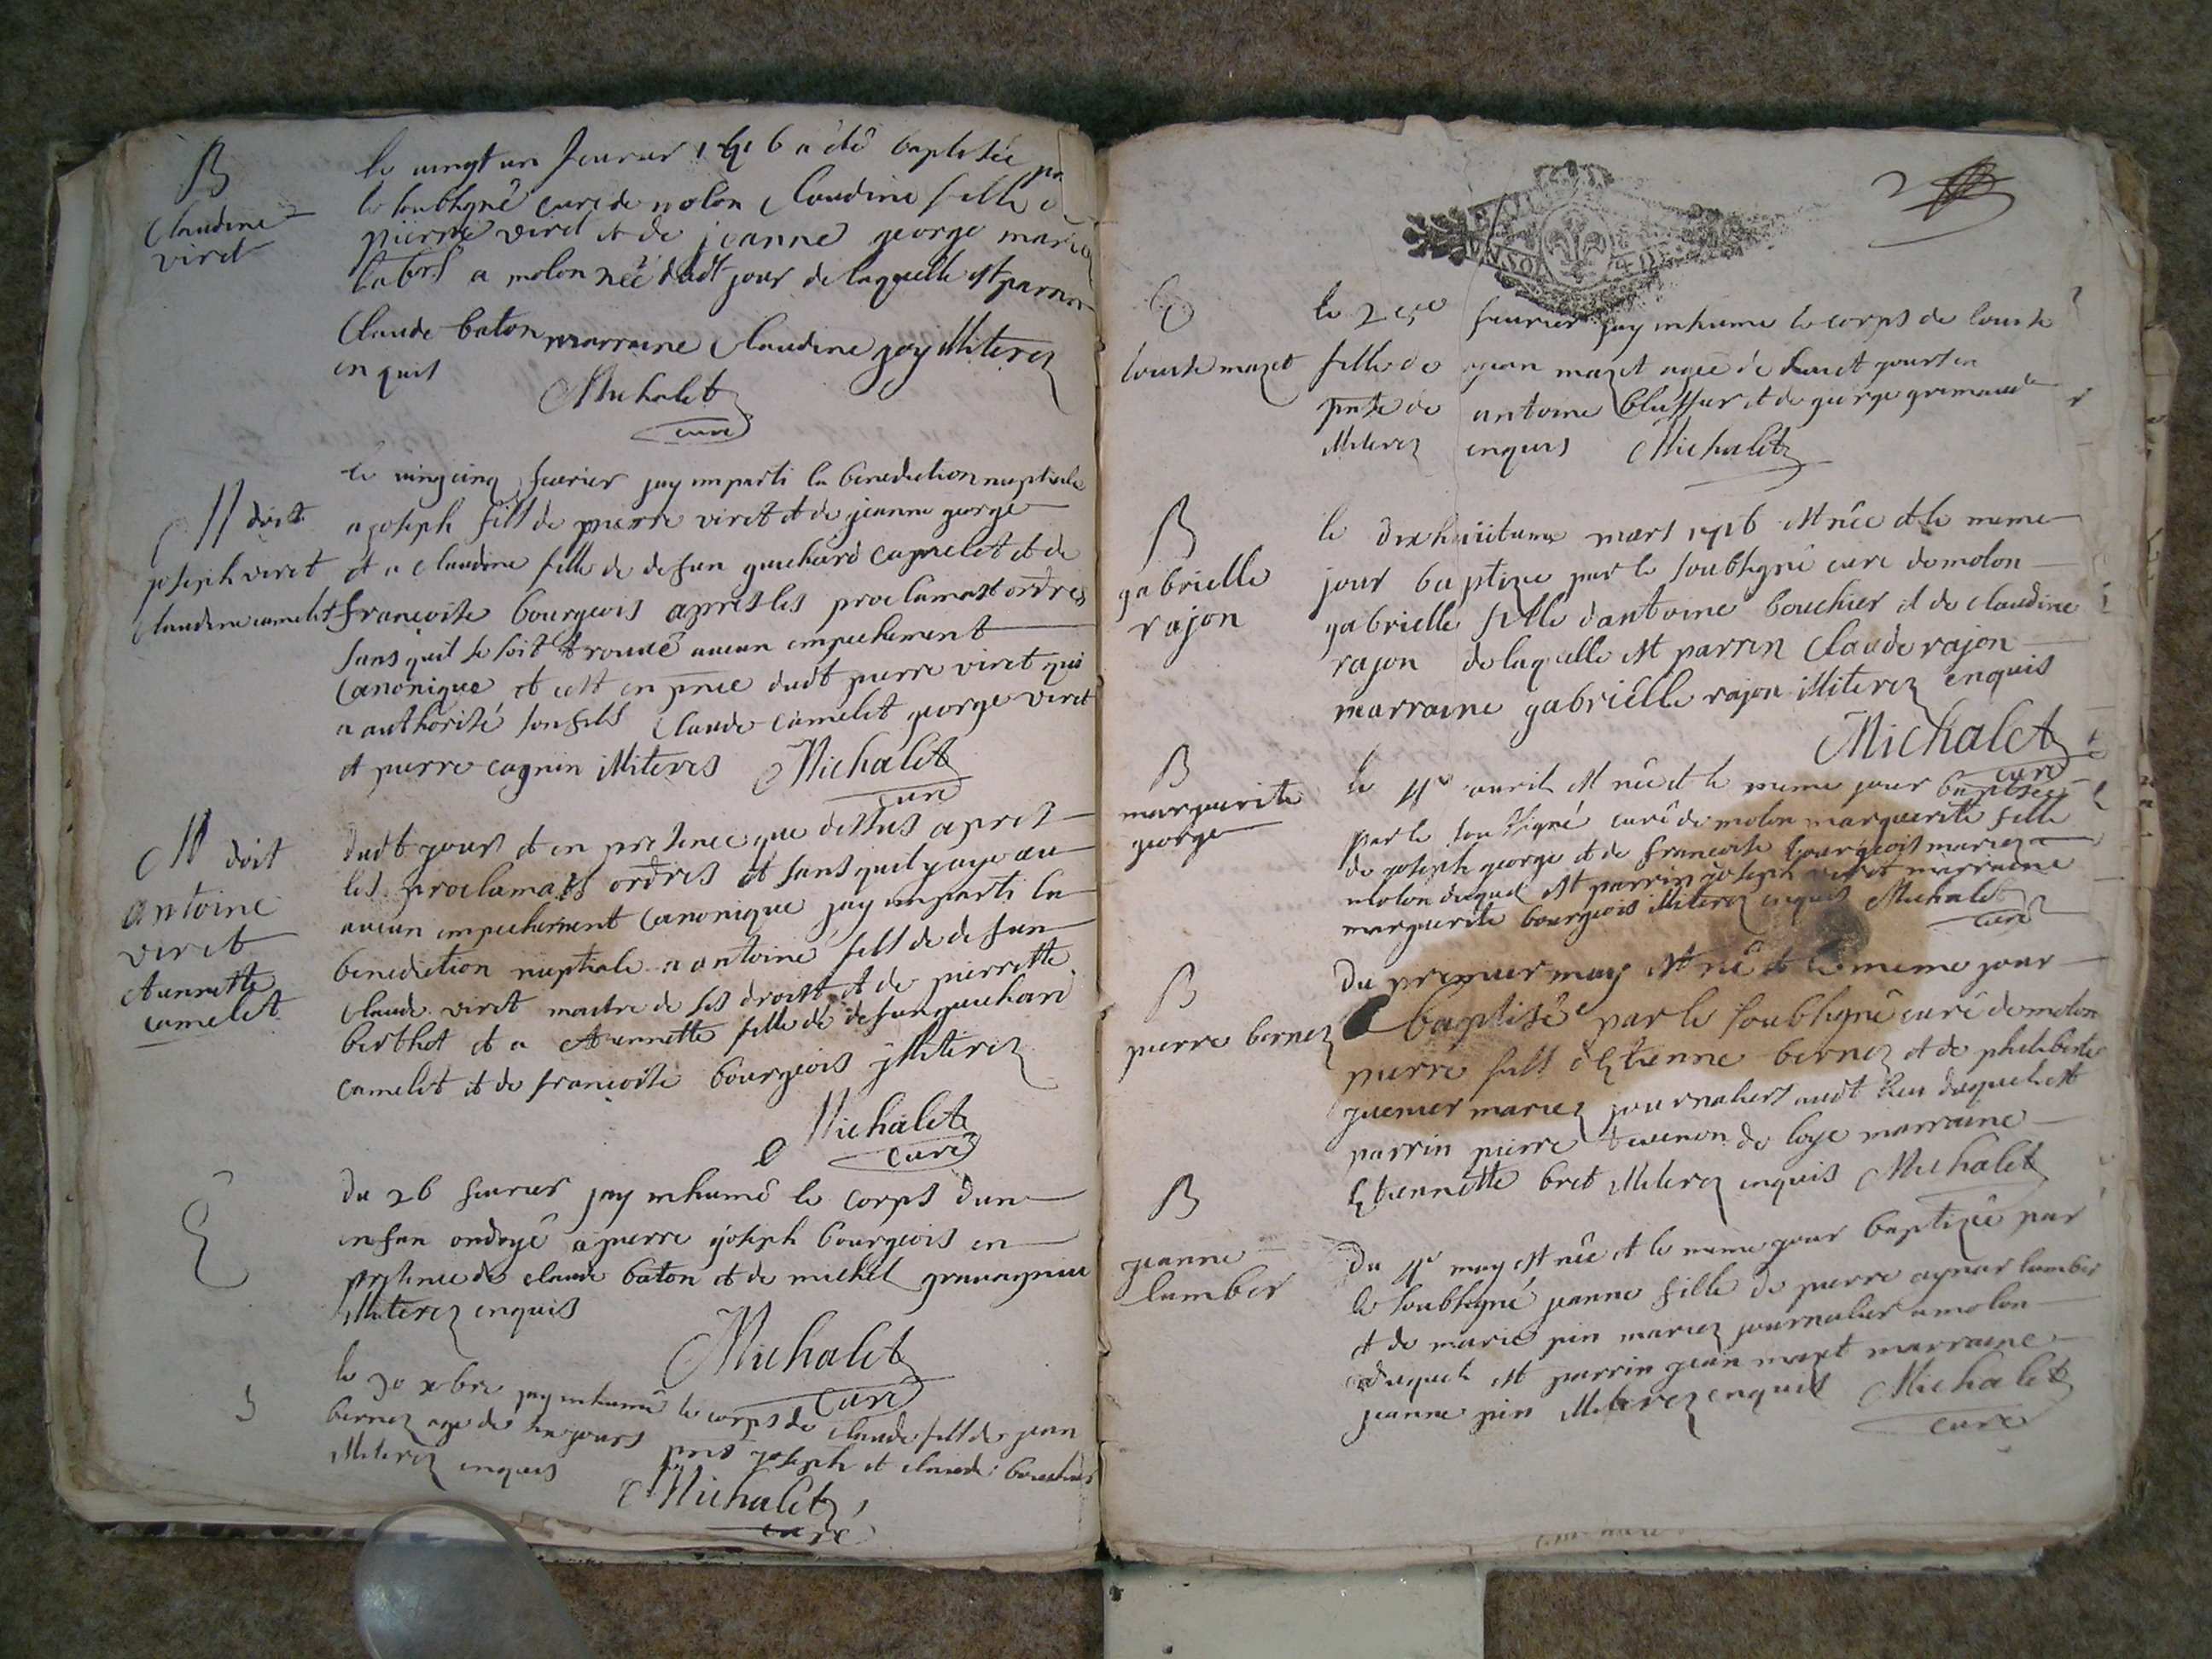 B
Claudine
viret
le vingt un feuvrier 1716 a été baptisée par
le soubsigné curé de molon Claudine fille de
pierre viret et de jeanne george mariez
labors a molon née dudt jour de laquelle est parrin
Claude baton marraine Claudine joy illiterez
enquis
Michalet
curé
M doit
joseph viret
Claudine camelet
le vingcinq feuvrier jay imparti la benediction nuptiale
a joseph fils de pierre viret et de jeanne george
et a Claudine fille de defun guichard camelet et de
francoise bourgeois apres les proclamaõs ordres
sans quil se soit trouué aucun empechement
Canonique et cest en pnce dudt pierre viret qui
a authorisé son fils Claude camelet george viret
et pierre cagnin illiteres Michalet
curé
M doit
antoine
viret
etiennette
camelet
dudt jours et en presence que dessus apres
les proclamaõs ordres et sans quil y aye au
aucun empechement Canonique jay imparti la
benediction nuptiale a antoine fils de defun
Claude viret maitre de ses droits et de pierrette
berthet et a etiennette fille de defun guichard
camelet et de francoise bourgeois illiterez
Michalet
curé
E
du 26 feuvrier jay inhumé le corps dun
enfan ondoyé a pierre joseph bourgeois en
presence de claude baton et de michel
illiterez enquis
Michalet
curé
le xbre jay inhumé le corps de claude fils de jean
bernez age de jours joseph et claude
illiterez enquis
Michalet
curé
2
louise mazet
le feuvrier jay inhumé le corps de louise
fille de jean mazet agée de huict jours en
pnce de antoine et de george grimaud
illiterez enquis Michalet
B
gabrielle
rajon
le dixhuitieme mars 1716 est née et le meme
jour baptize par le soubsigné curé de molon
gabrielle fille dantoine bouchier et de claudine
rajon de laquelle est parrin Claude rajon
marraine gabrielle rajon illiterez enquis
Michalet
curé
B
marguerite
george
le 4e avril est née et le meme jour baptisée
par le soussigné curé de molon marguerite fille
de joseph george et de francoise bourgeois mariez a
molon duquel est parrin joseph viret marraine
marguerite bourgeois illiterez enquis Michalet
curé
B
pierre bernez
Du premier may est né et le meme jour
baptisé par le soubsigné curé de molon
pierre fils detienne bernez et de philiberte
guenier mariez journaliers audt lieu duquel est
parrin pierre tevenon de loye marraine
Etiennette bret illiterez enquis Michalet
B
jeanne
lamber
Du 4e may est née et le meme jour baptizée par
le soubsigné jeanne fille de pierre aynar lamber
et de marie pin mariez journalier a molon
duquel est parrin jean mazet marraine
jeanne pin illiterez enquis Michalet
curé